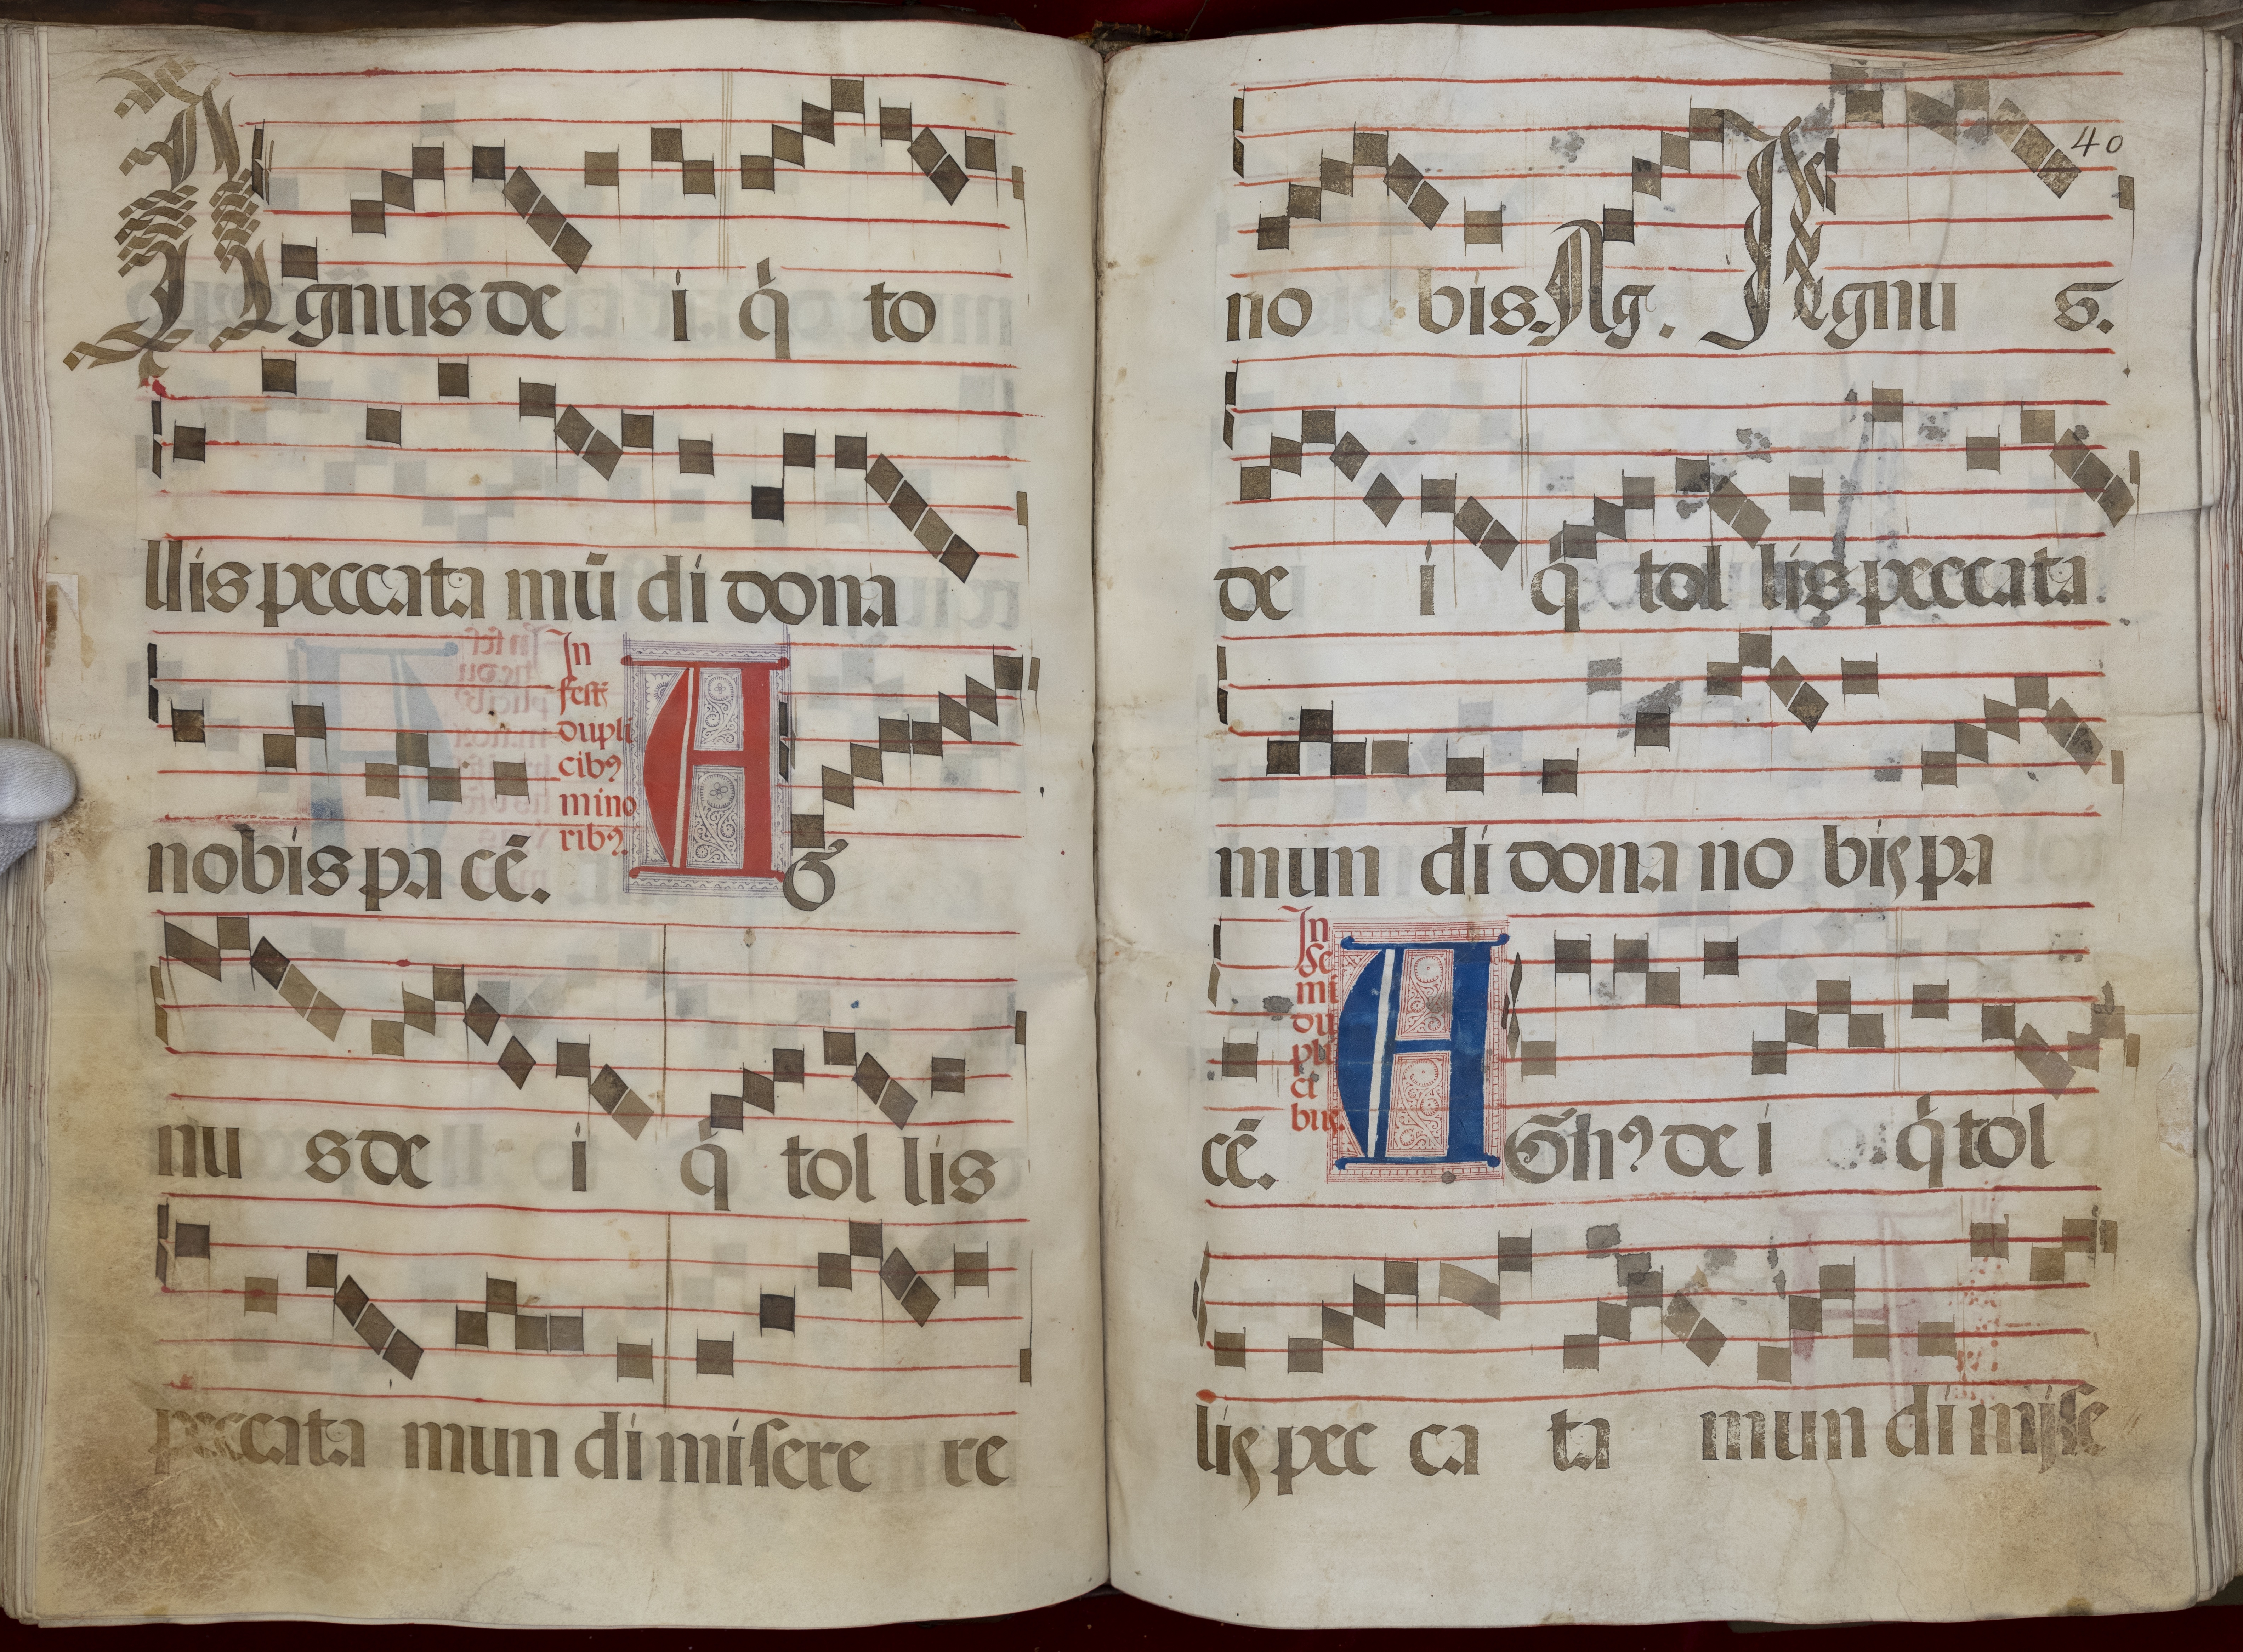 Agnus de i q̇ to
llis peccata mū di dona
In
festꝭ
dupli
cibꝯ
mino
ribꝯ.
nobis pa cē. A G
nu s de i q̇ tol lis
peccata mun di miſere re
40
no bis. Ag. Agnu s.
de i q̇ tol lis peccata
mun di dona no bis pa
In
se
mi
du
pli
ci
bus.
cē. A Gnꝯ de i q̇ tol
lis pec ca ta mun di miſe